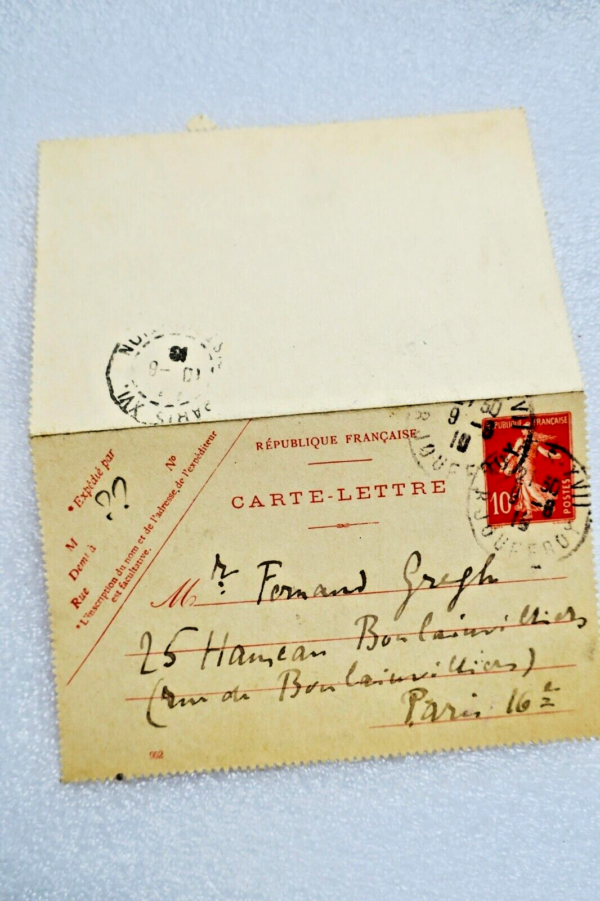 PARIS XVI
RÉPUBLIQUE FRANÇAISE
CARTE-LETTRE
RÉPUBLIQUE FRANÇAISE
10
POSTES
JOUFFROY
XVII
* Expédié par
M
Dem^t à
Rue
N^o
* L'inscription du nom et de l'adresse de l'expéditeur
est facultative.
M^r. Fernand Gregh
25 Hameau Boulainvilliers
(rue de Boulainvilliers)
Paris 16^e
992